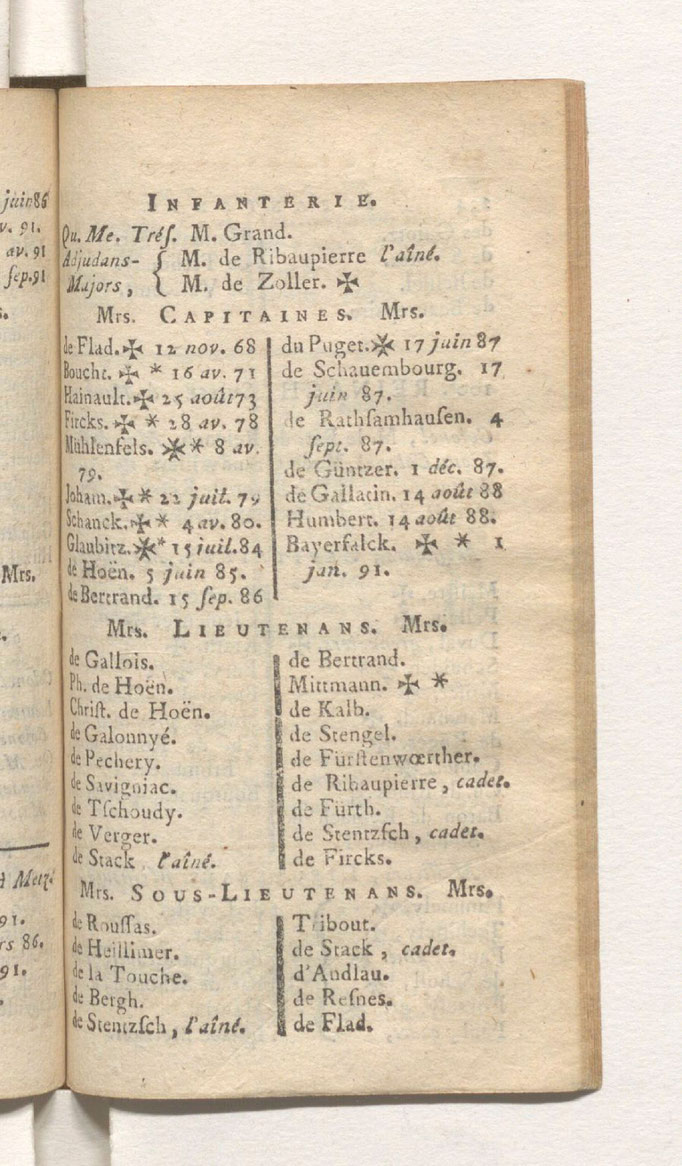 juin 86
v. 91.
av. 91
sep. 91
Mrs.
à Metz.
91.
rs 86.
91.
INFANTERIE.
Qu. Me. Tréſ. M. Grand.
Adjudans- { M. de Ribaupierre l'aîné.
Majors, { M. de Zoller. ✠
Mrs. CAPITAINES. Mrs.
de Flad. ✠ 12 nov. 68
Boucht. ✠ * 16 av. 71
Hainault. ✠ 25 août 73
Fircks. ✠ * 28 av. 78
Mühlenfels. ✠ * 8 av.
79.
Joham. ✠ * 22 juil. 79
Schanck. ✠ * 4 av. 80.
Glaubitz. ✠ * 15 juil. 84
de Hoën. 5 juin 85.
de Bertrand. 15 ſep. 86
du Puget. ✠ 17 juin 87
de Schauembourg. 17
juin 87.
de Rathſamhauſen. 4
ſept. 87.
de Güntzer. 1 déc. 87.
de Gallatin. 14 août 88
Humbert. 14 août 88.
Bayerfalck. ✠ * 1
jan. 91.
Mrs. LIEUTENANS. Mrs.
de Gallois.
Ph. de Hoën.
Chriſt. de Hoën.
de Galonnyé.
de Pechery.
de Savigniac.
de Tſchoudy.
de Verger.
de Stack l'aîné.
de Bertrand.
Mittmann. ✠ *
de Kalb.
de Stengel.
de Fürſtenwœrther.
de Ribaupierre, cadet.
de Fürth.
de Stentzſch, cadet.
de Fircks.
Mrs. SOUS-LIEUTENANS. Mrs.
de Rouſſas.
de Heiſſimer.
de la Touche.
de Bergh.
de Stentzſch, l'aîné.
Tribout.
de Stack, cadet.
d'Andlau.
de Reſnes.
de Flad.